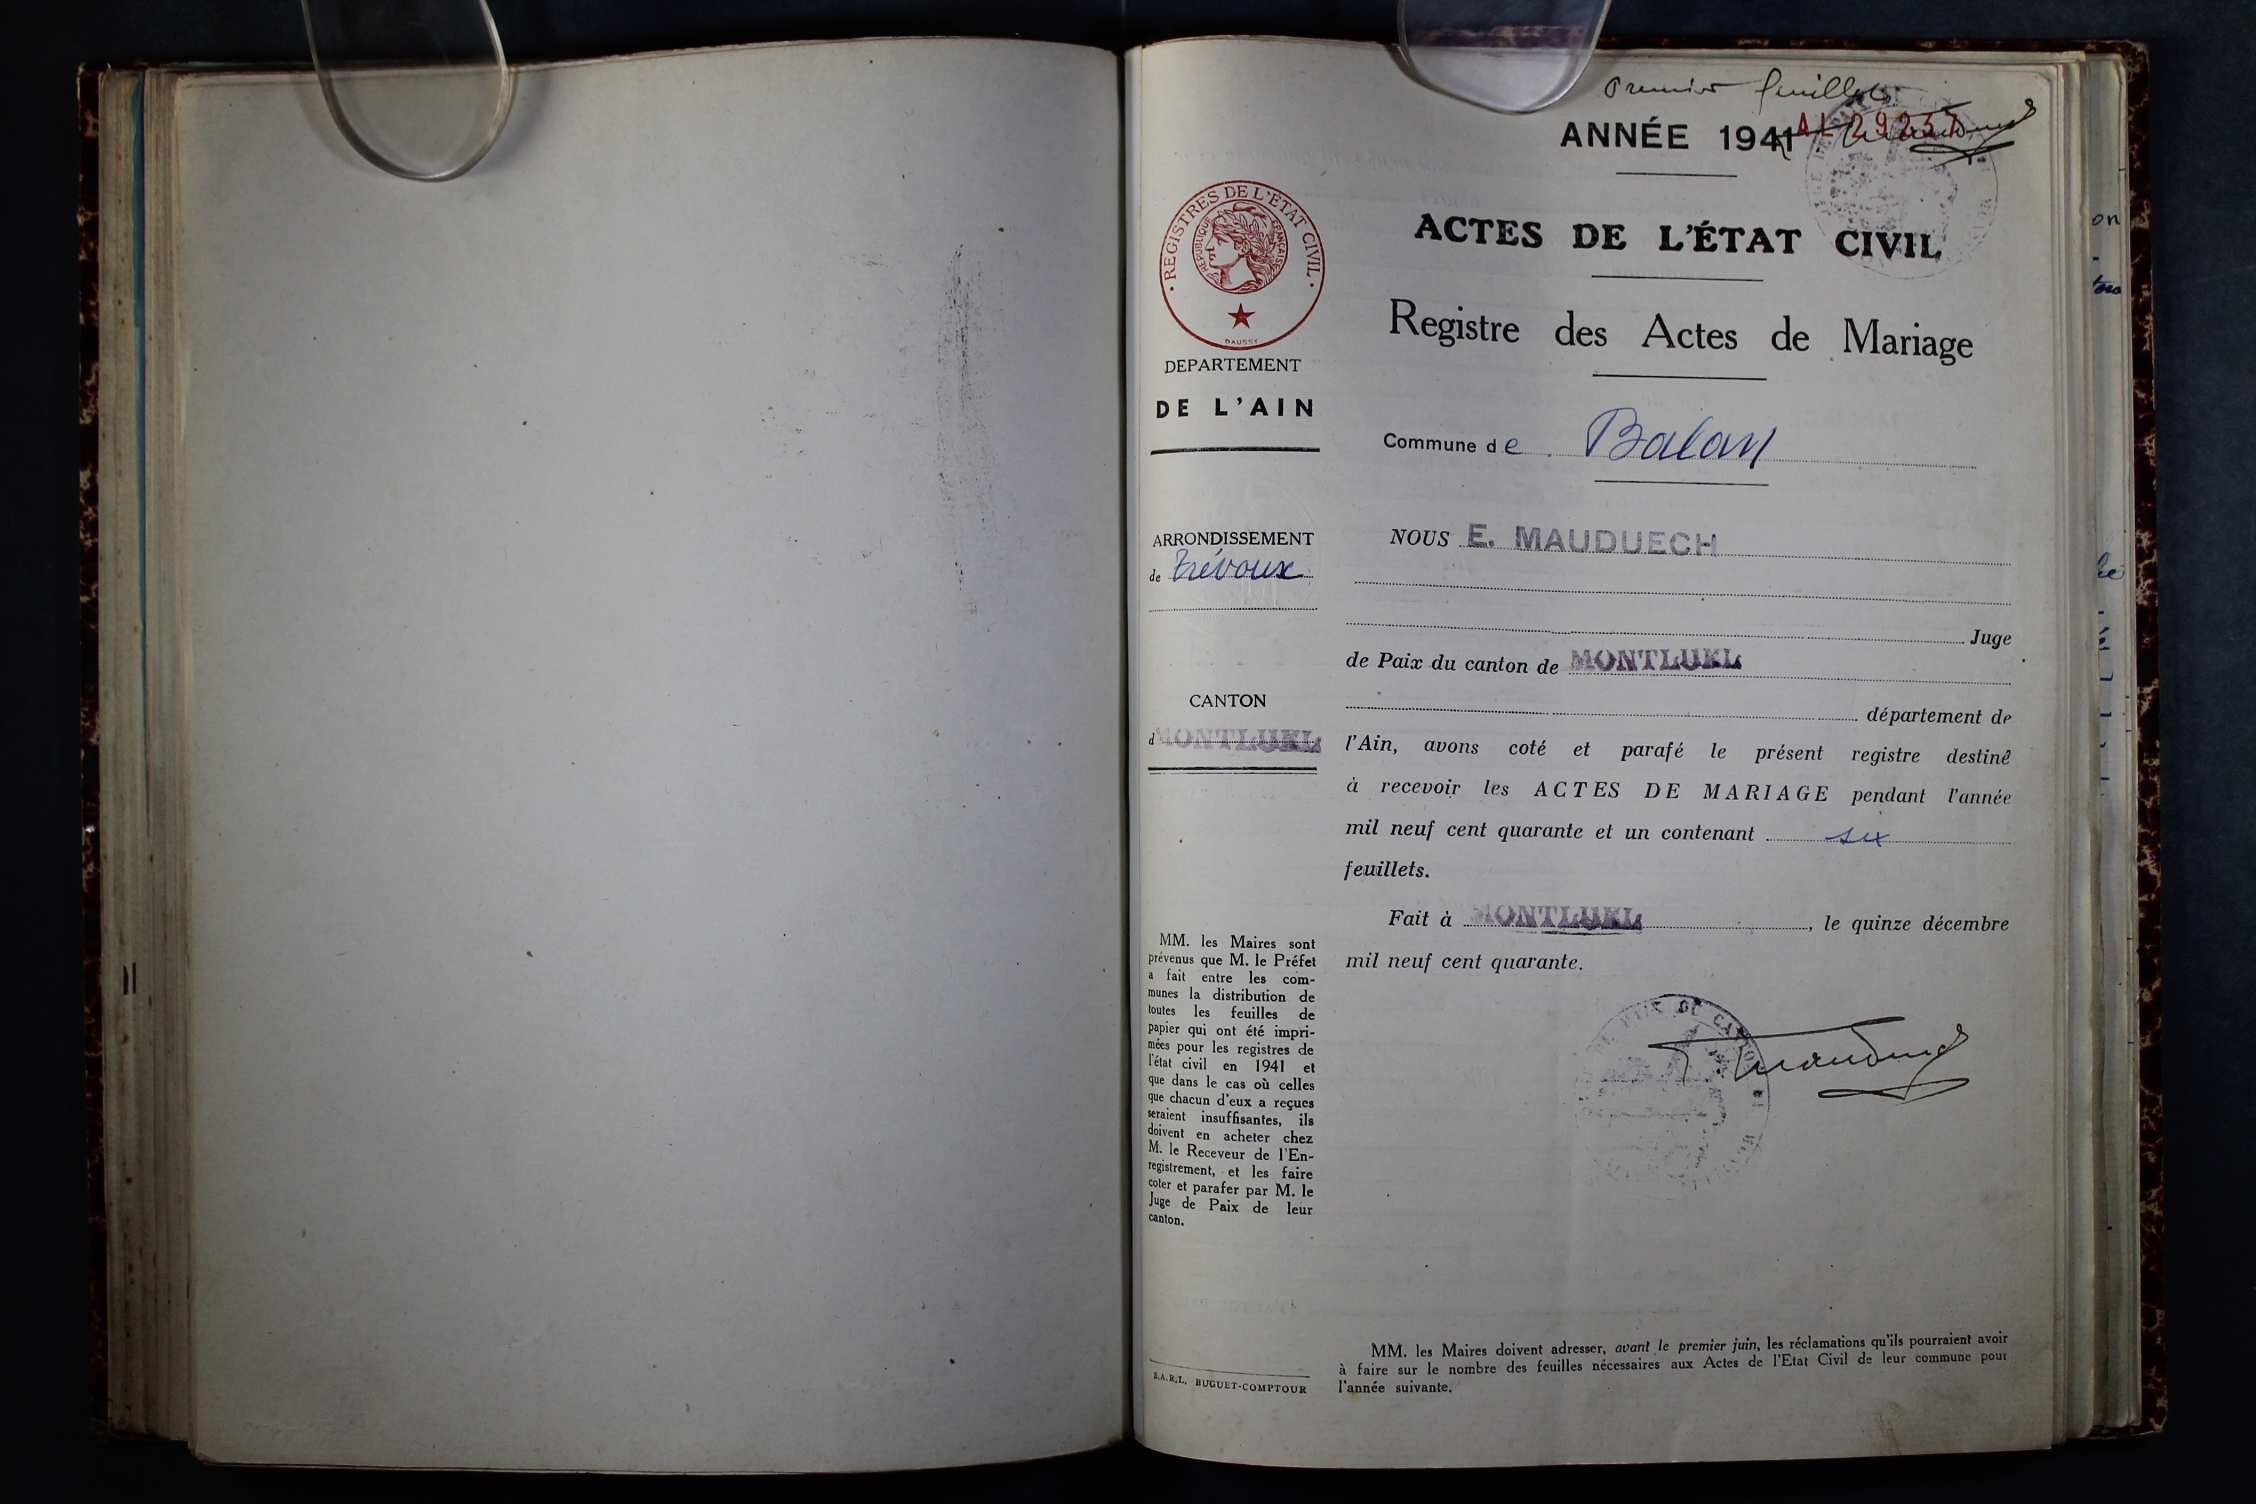 Premier feuillet
ANNÉE 1941
AL 29237
ACTES DE L'ÉTAT CIVIL
Registre des Actes de Mariage
Commune de Balan
REGISTRES DE L'ÉTAT CIVIL
RÉPUBLIQUE FRANÇAISE
DAUSSY
DEPARTEMENT
DE L'AIN
ARRONDISSEMENT
de Trévoux
CANTON
d MONTLUEL
MM. les Maires sont
prévenus que M. le Préfet
a fait entre les com-
munes la distribution de
toutes les feuilles de
papier qui ont été impri-
mées pour les registres de
l'état civil en 1941 et
que dans le cas où celles
que chacun d'eux a reçues
seraient insuffisantes, ils
doivent en acheter chez
M. le Receveur de l'En-
registrement, et les faire
coter et parafer par M. le
Juge de Paix de leur
canton.
S.A.R.L. BUGUET-COMPTOUR
NOUS E. MAUDUECH
Juge
de Paix du canton de MONTLUEL
département de
l'Ain, avons coté et parafé le présent registre destiné
à recevoir les ACTES DE MARIAGE pendant l'année
mil neuf cent quarante et un contenant six
feuillets.
Fait à MONTLUEL, le quinze décembre
mil neuf cent quarante.
PAIX DU CANTON DE
MM. les Maires doivent adresser, avant le premier juin, les réclamations qu'ils pourraient avoir
à faire sur le nombre des feuilles nécessaires aux Actes de l'Etat Civil de leur commune pour
l'année suivante.
on